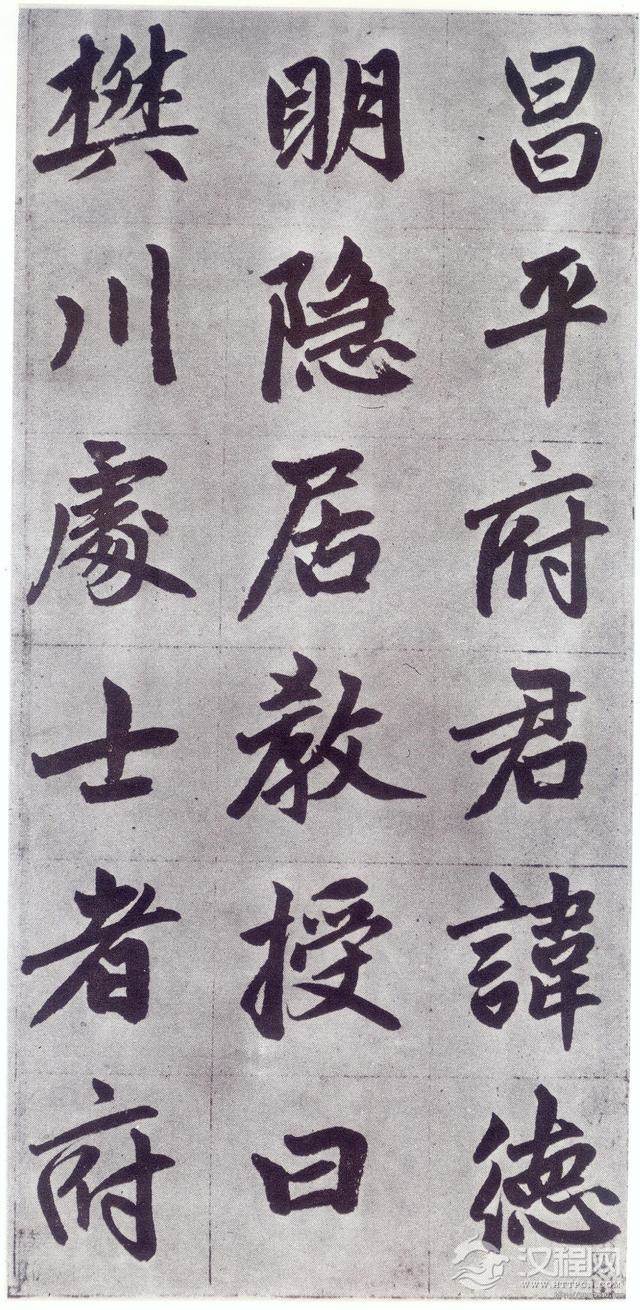 昌平府君諱德
明隐居教授曰
樊川處士者府
汉程网
WWW.HTTPCN.COM